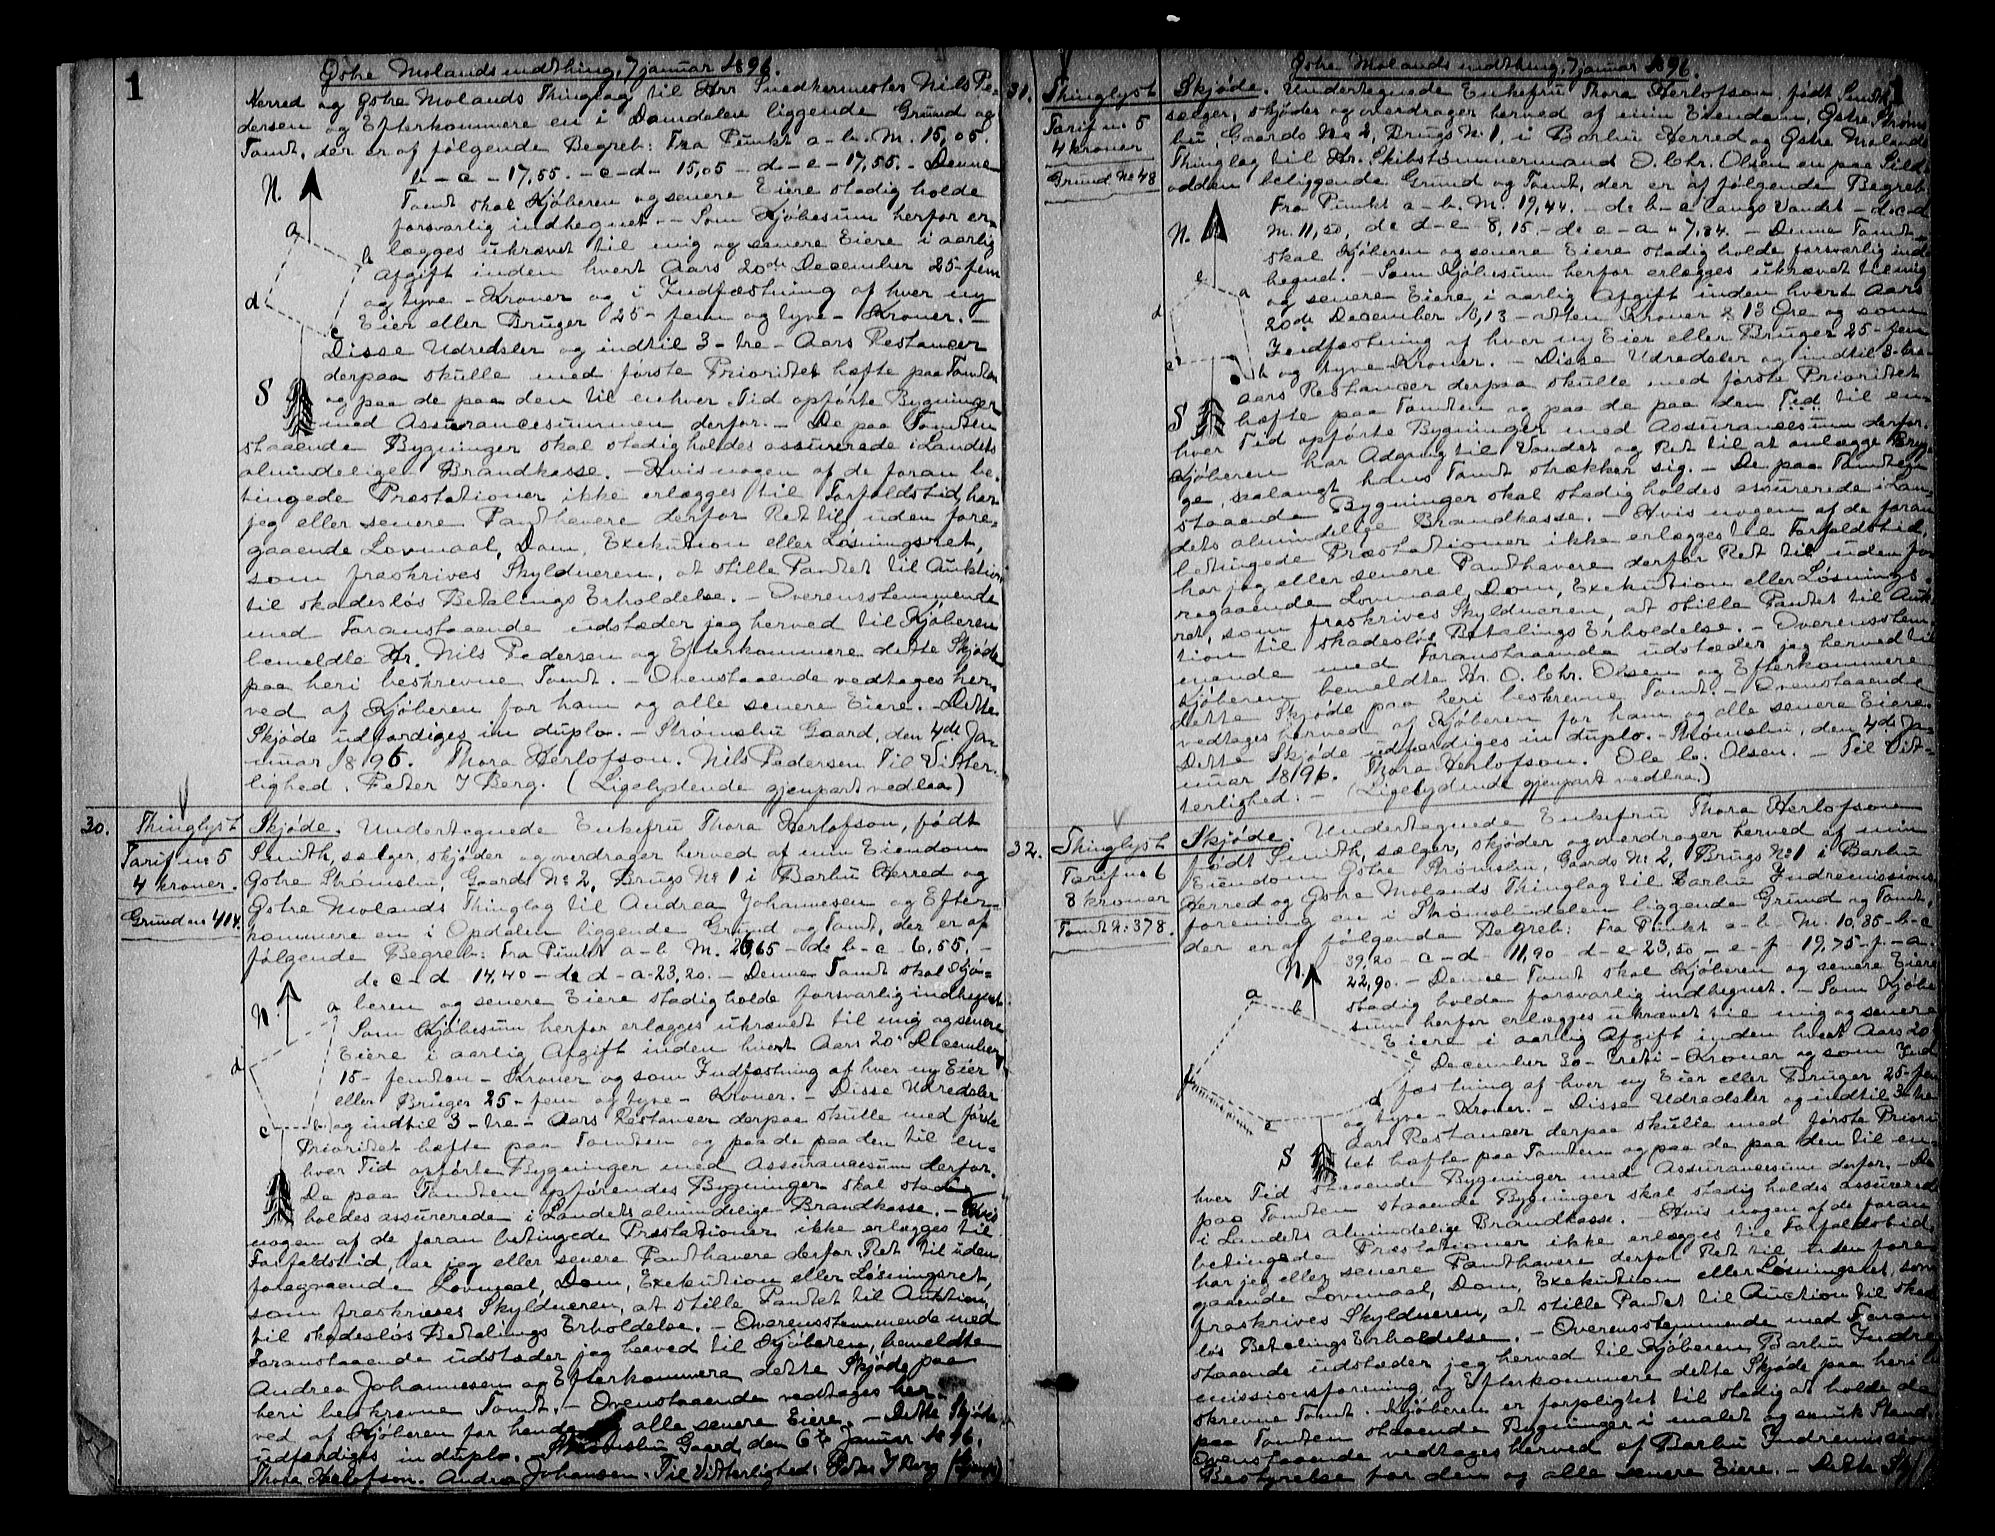 1
Østre Molands indthing, 7 januar 1896.
Herred og Østre Molands Thinglag til Hrr Snedkermester Nils Pe-
dersen og Efterkommere en i Damdalen liggende Grund og
Tomt, der er af følgende Begreb: Fra Punkt a-b. M. 15,05.
b-c-17,55. - c-d- 15,05 - d-e-17,55. - Denne
N.
Tomt skal Kjøberen og senere Eiere stadig holde
forsvarlig indhegnet. - Som Kjøbesum herfor er-
a
b
lægges ukrævet til mig og senere Eiere i aarlig
afgift inden hvert Aars 20de December 25- fem
d
c
og tyve - Kroner og i Indfæstning af hver ny
Eier eller Bruger 25- fem og tyve - Kroner. -
Disse Udredsler og indtil 3- tre - Aars Restancer
derpaa skulle med første Prioritet hæfte paa Tomten
S
og paa de paa den til enhver Tid opførte Bygninger
med Assurancesummen derfor. - De paa Tomten
staaende Bygninger skal stadig holdes assurerede i Landets
almindelige Brandkasse. - Hvis nogen af de foran be-
tingede Præstationer ikke erlægges til Forfaldstid, har
jeg eller senere Panthavere derfor Ret til, uden fore-
gaaende Lovmaal, Dom, Exekution eller Løsningsret,
som fraskrives Skyldneren, at stille Pantet til Auktion
til skadesløs Betalings Erholdelse. - Overensstemmende
med Foranstaaende udstæder jeg herved til Kjøberen
bemeldte Hr. Nils Pedersen og Efterkommere dette Skjøde
paa heri beskrevne Tomt. - Ovenstaaende vedtages her-
ved af Kjøberen for ham og alle senere Eiere. - Dette
Skjøde udfærdiges in duplo. - Strømsbu Gaard, den 4de Ja-
nuar 1896. Thora Herlofson. Nils Pedersen Til Vitter-
lighed. Peter J Berg. (Ligelydende gjenpart vedlaa)
30.
Thinglyst
Tarif no 5
4 kroner.
Grund no 414.
Skjøde. Undertegnede Enkefru Thora Herlofson, født
Smith, sælger, skjøder og overdrager herved af min Eiendom
Østre Strømsbu, Gaards No 2, Brugs No 1 i Barbu Herred og
Østre Molands Thinglag til Andrea Johannesen og Efter-
kommere en i Opdalen liggende Grund og Tomt, der er af
følgende Begreb: Fra Punkt a-b M. 25,65 - de b-c 6,55. -
de c-d 14,40 - de d-a-23,20. - Denne Tomt skal Kjø-
N.
a
beren og senere Eiere stadig holde forsvarlig indhegnet
Som Kjøbesum herfor erlægges ukrævet til mig og senere
d
Eiere i aarlig Afgift inden hvert Aars 20de December
15- femten - Kroner og som Indfæstning af hver ny Eier
eller Bruger 25- fem og tyve - Kroner. - Disse Udredsler
c
b
og indtil 3- tre - Aars Restancer derpaa skulle med første
Prioritet hæfte paa Tomten og paa de paa den til en-
hver Tid opførte Bygninger med Assurancesum derfor.
De paa Tomten opførendes Bygninger skal stadig
holdes assurerede i Landets almindelige Brandkasse. - Hvis
nogen af de foran betingede Præstationer ikke erlægges til
Forfaldstid, har jeg eller senere Panthavere derfor Ret til uden
foregaaende Lovmaal, Dom, Exekution eller Løsningsret,
som fraskrives Skyldneren, at stille Pantet til Auktion,
til skadesløs Betalings Erholdelse. - Overensstemmende med
Foranstaaende udstæder jeg herved til Kjøberen, bemeldte
Andrea Johannesen og Efterkommere dette Skjøde paa
heri beskrevne Tomt. - Ovenstaaende vedtages her-
ved af Kjøberen for hende alle senere Eiere. - Dette Skjøde
udfærdiges in duplo. Strømsbu Gaard, den 6te Januar 1896.
Thora Herlofson. Andrea Johansen. Til Vitterlighed: Peter J Berg
Østre Molands indthing, 7 januar 1896.
1
31.
Thinglyst
Tarif no 5
4 kroner
Grund No 48
Skjøde. Undertegnede Enkefru Thora Herlofson, født Smith,
sælger, skjøder og overdrager herved af min Eiendom, Østre Strøms-
bu, Gaards No 2, Brugs No 1, i Barbu Herred og Østre Molands
Thinglag til Hr. Skibstømmermand O. Chr. Olsen en paa Sild-
odden beliggende Grund og Tomt, der er af følgende Begreb:
Fra Punkt a-b. M. 19,44. - de b-c langs Vandet - de c-d
N.
M. 11,50, de d-e- 8,15. - de e-a - 7,84. - Denne Tomt
skal Kjøberen og senere Eiere stadig holde forsvarlig ind-
hegnet. - Som Kjøbesum herfor erlægges ukrævet til mig
e
a
og senere Eiere i aarlig Afgift inden hvert Aars
d
20de December 18,13 - atten Kroner & 13 Øre og som
Indfæstning af hver ny Eier eller Bruger 25- fem
c
b
og tyve - Kroner. - Disse Udredsler og indtil 3- tre-
aars Restancer derpaa skulle med første Prioritet
S
hæfte paa Tomten og paa de paa den Tid til en-
hver Tid opførte Bygninger med Assurancesum derfor.
Kjøberen har Adgang til Vandet og Ret til at anlægge Bryg-
ge, saalangt hans Tomt strækker sig. - De paa Tomten
staaende Bygninger skal stadig holdes assurerede i Lan-
dets almindelige Brandkasse. - Hvis nogen af de foran
betingede Præstationer ikke erlægges til Forfaldstid,
har jeg eller senere Panthavere derfor Ret til uden fo-
regaaende Lovmaal, Dom, Exekution eller Løsnings-
ret, som fraskrives Skyldneren, at stille Pantet til Auk-
tion til skadesløs Betalings Erholdelse. - Overensstem-
mende med Foranstaaende udstæder jeg herved til
Kjøberen bemeldte Hr. O. Chr. Olsen og Efterkommere
dette Skjøde paa heri beskrevne Tomt. - Ovenstaaende
vedtages herved af Kjøberen for ham og alle senere Eiere.
Dette Skjøde udfærdiges in duplo. - Strømsbu, den 4de Ja-
nuar 1896. Thora Herlofson. Ole C. Olsen. - Til Vit-
terlighed: - (Ligelydende gjenpart vedlaa)
32.
Thinglyst
Tarif no 6
8 kroner
Tomt No: 378.
Skjøde. Undertegnede Enkefru Thora Herlofson
født Smith, sælger, skjøder og overdrager herved af min
Eiendom Østre Strømsbu, Gaards No 2, Brugs No 1 i Barbu
Herred og Østre Molands Thinglag til Barbu Indremissions-
forening en i Strømsbudalen liggende Grund og Tomt,
der er af følgende Begreb: Fra Punkt a-b- M. 10,35 - b-c
39,20 - c-d- 11,90 - d-e 23,50 - e-f- 19,75 - f-a-
N.
22,90. - Denne Tomt skal Kjøberen og senere Eiere
a
b
stadig holde forsvarlig indhegnet. - Som Kjøbe-
sum herfor erlægges ukrævet til mig og senere
Eiere i aarlig Afgift inden hvert Aars 20de
c
December 30- treti - Kroner og som Ind-
f
fæstning af hver ny Eier eller Bruger 25- fem
d
og tyve - Kroner. - Disse Udredsler og indtil 3- tre
e
Aars Restancer derpaa skulle med første Priori-
S
tet hæfte paa Tomten og paa de paa den til en-
hver Tid staaende Bygninger med Assurancesum derfor. - De
paa Tomten staaende Bygninger skal stadig holdes assurered
i Landets almindelige Brandkasse. - Hvis nogen af de foran
betingede Præstationer ikke erlægges til Forfaldstid
har jeg eller senere Panthavere derfor Ret til uden fore-
gaaende Lovmaal, Dom, Exekution eller Løsningsret, som
fraskrives Skyldneren, at stille Pantet til Auction til skades-
løs Betalings Erholdelse. - Overensstemmende med Foran-
staaende udstæder jeg herved til Kjøberen Barbu Indre-
missionsforening og Efterkommere dette Skjøde paa heri be-
skrevne Tomt. - Kjøberen er forpligtet til stadig at holde de
paa Tomten staaende Bygninger i malet og smuk Stand.
Ovenstaaende vedtages herved af Barbu Indremissions
Bestyrelse for dem og alle senere Eiere. - Dette Skj